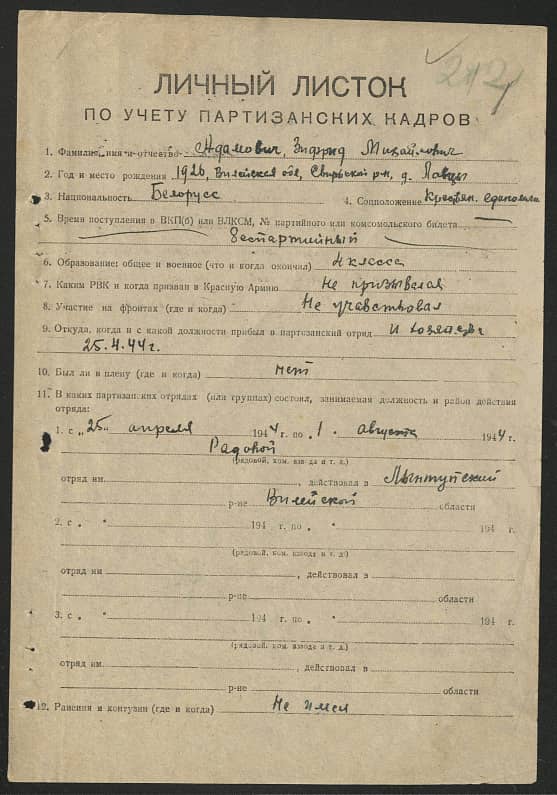 ЛИЧНЫЙ ЛИСТОК
ПО УЧЕТУ ПАРТИЗАНСКИХ КАДРОВ
1. Фамилия, имя и отчество Адамович, Зифрид Михайлович
2. Год и место рождения 1926, Вилейская обл, Свирьский р-н, д.
3. Национальность Белорусс 4. Соцположение Крестьян.
5. Время поступления в ВКП(б) или ВЛКСМ, № партийного или комсомольского билета
беспартийный
6. Образование: общее и военное (что и когда окончил) 4 класса
7. Каким РВК и когда призван в Красную Армию Не призывался
8. Участие на фронтах (где и когда) Не учавствовал
9. Откуда, когда и с какой должности прибыл в партизанский отряд
25.4.44 г.
10. Был ли в плену (где и когда) нет
11. В каких партизанских отрядах (или группах) состоял, занимаемая должность и район действия
отряда:
1. с „25“ апреля 1944 г. по „1. августа 1944 г.
Радовой
(рядовой, ком. взвода и т. д.)
отряд им. , действовал в Лынтупский
р-не Вилейской области
2. с „ “ 194 г. по „ “ 194 г.
(рядовой, ком. взвода и т. д.)
отряд им , действовал в
р-не области
3. с „ “ 194 г. по „ “ 194 г.
(рядовой, ком. взвода и т. д.)
отряд им. , действовал в
р-не области
12. Ранения и контузии (где и когда) Не имел